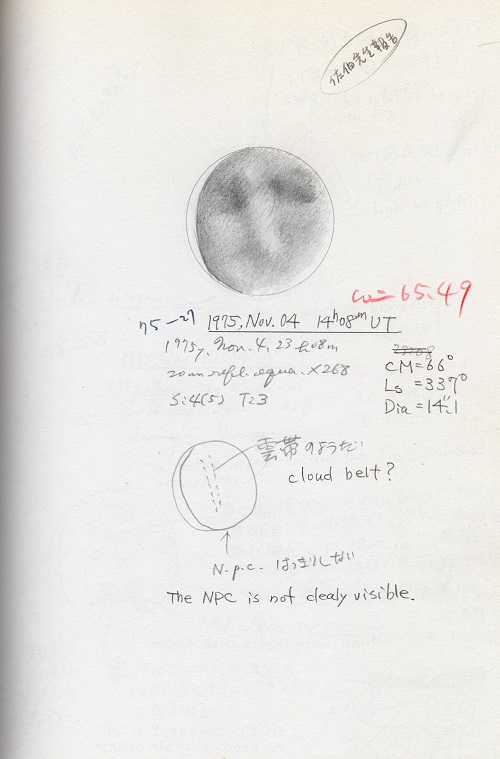 佐伯先生報告
ω=65.49
75-27 1975, Nov. 04 14h08m UT
1975y, Nov. 4, 23h08m
20cm refl. equa. ×268
S:4(5) T=3
CM=66°
Ls=337°
Dia=14".1
雲帯のようだ
cloud belt?
N.p.c. はっきりしない
The NPC is not clealy visible.